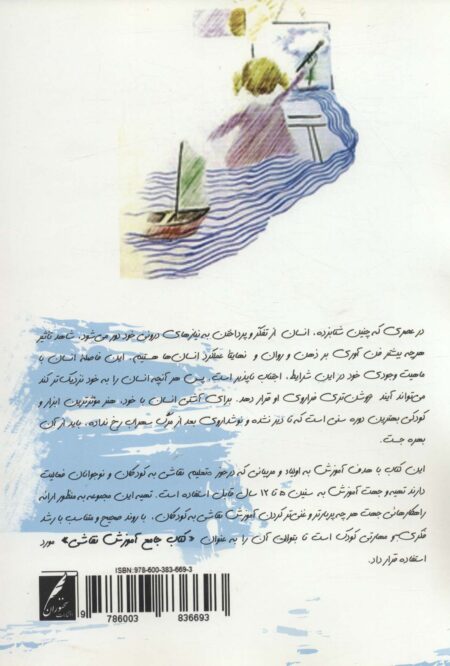 در عصری که چنین شتابزده، انسان از تفکر و پرداختن به نیازهای درونی خود دور می‌شود، شاهد تاثیر
هرچه بیشتر فن آوری بر ذهن و روان و نهایتا عملکرد انسان‌ها هستیم. این فاصله انسان با
ماهیت وجودی خود در این شرایط، اجتناب ناپذیر است. پس هر آنچه انسان را به خود نزدیک‌تر کند
می‌تواند آینده خوشبخت‌تری فراروی او قرار دهد. برای آشتی انسان با خود، هنر موثرترین ابزار و
کودکی بهترین دوره سنی است که تا دیر نشده و نوشداروی بعد از مرگ سهراب رخ نداده، باید از آن
بهره جست.
این کتاب با هدف آموزش به اولیاء و مربیانی که در حوزه تعلیم نقاشی به کودکان و نوجوانان فعالیت
دارند تهیه و جهت آموزش به سنین ۵ تا ۱۲ سال قابل استفاده است. تهیه این مجموعه به منظور ارائه
راهکارهائی جهت هر چه پربارتر و غنی‌تر کردن آموزش نقاشی به کودکان، با روند صحیح و متناسب با رشد
فکری و مهارتی کودک است تا بتوان آن را به عنوان «کتاب جامع آموزش نقاشی» مورد
استفاده قرار داد.
ISBN: 978-600-383-669-3
9 786003 836693